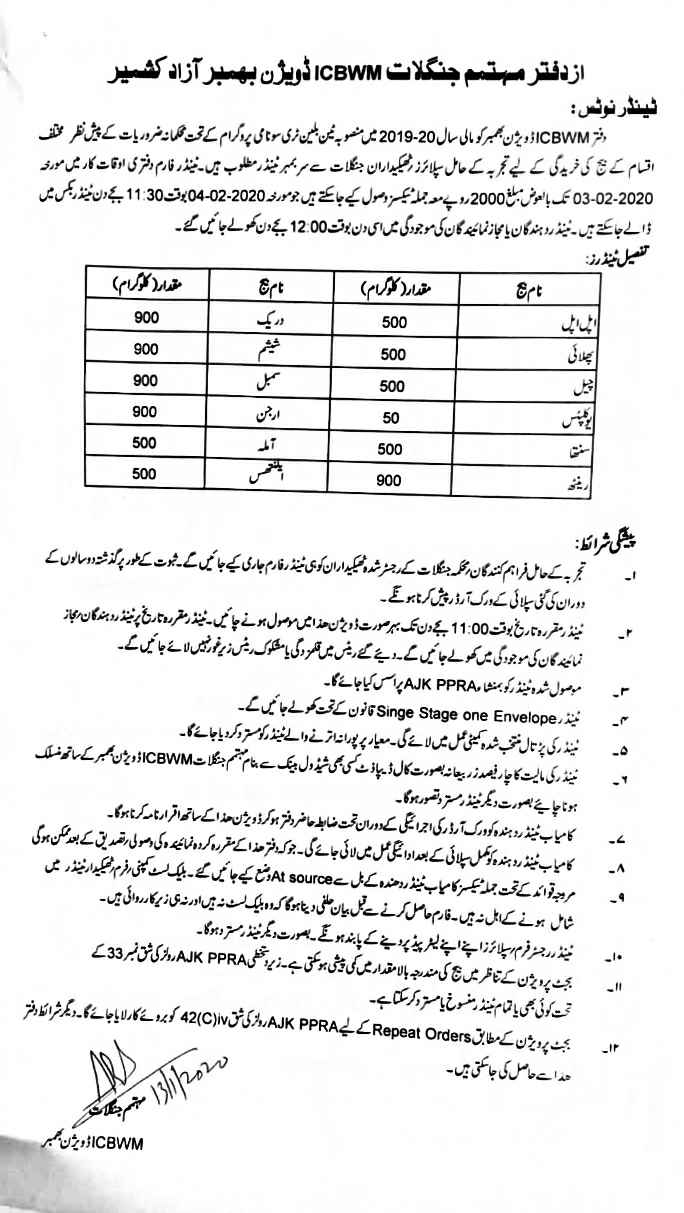 از دفتر مہتمم جنگلات ICBWM ڈویژن بھمبر آزاد کشمیر
ٹینڈر نوٹس:
دفتر ICBWM ڈویژن بھمبر کو مالی سال 20-2019 میں منصوبہ ٹین بلین ٹری سونامی پروگرام کے تحت محکمانہ ضروریات کے پیش نظر مختلف
اقسام کے بیج کی خریدگی کے لیے تجربہ کے حامل سپلائرز/ٹھیکیداران جنگلات سے سربمہر ٹینڈر مطلوب ہیں۔ ٹینڈر فارم دفتری اوقات کار میں مورخہ
03-02-2020 تک بالعوض مبلغ 2000 روپے معہ جملہ ٹیکسز وصول کیے جاسکتے ہیں جو مورخہ 04-02-2020 بوقت 11:30 بجے دن ٹینڈر بکس میں
ڈالے جاسکتے ہیں۔ ٹینڈر دہندگان یا مجاز نمائیندگان کی موجودگی میں اسی دن بوقت 12:00 بجے دن کھولے جائیں گے۔
تفصیل ٹینڈرز:
نام بیج مقدار (کلوگرام) نام بیج مقدار (کلوگرام)
اپل اپل 500 دریک 900
پھلائی 500 شیشم 900
چیل 500 سمبل 900
یوکلپٹس 50 ارجن 900
سنتھا 500 آملہ 500
ریٹھ 900 ایلنتھس 500
پیشگی شرائط:
۱۔ تجربہ کے حامل فراہم کنندگان/محکمہ جنگلات کے رجسٹر شدہ ٹھیکیداران کو ہی ٹینڈر فارم جاری کیے جائیں گے۔ ثبوت کے طور پر گذشتہ دو سالوں کے
دوران کی گئی سپلائی کے ورک آرڈر پیش کرنا ہونگے۔
۲۔ ٹینڈر مقررہ تاریخ بوقت 11:00 بجے دن تک بہر صورت ڈویژن ھذا میں موصول ہونے چاہیں۔ ٹینڈر مقررہ تاریخ پر ٹینڈر دہندگان/مجاز
نمائیندگان کی موجودگی میں کھولے جائیں گے۔ دیئے گئے ریٹس میں قلمزدگی یا مشکوک ریٹس زیر غور نہیں لائے جائیں گے۔
۳۔ موصول شدہ ٹینڈر کو بمنشاء AJK PPRA پراسس کیا جائے گا۔
۴۔ ٹینڈر Singe Stage one Envelope قانون کے تحت کھولے جائیں گے۔
۵۔ ٹینڈر کی پڑتال منتخب شدہ کمیٹی عمل میں لائے گی۔ معیار پر پورا نہ اترنے والے ٹینڈر کو مسترد کر دیا جائے گا۔
۶۔ ٹینڈر کی مالیت کا چار فیصد زر بیعانہ بصورت کال ڈیپازٹ کسی بھی شیڈول بینک سے بنام مہتمم جنگلات ICBWM ڈویژن بھمبر کے ساتھ منسلک
ہونا چاہیے بصورت دیگر ٹینڈر مسترد تصور ہوگا۔
۷۔ کامیاب ٹینڈر دہندہ کو ورک آرڈر کی اجرائیگی کے دوران تحت ضابطہ حاضر دفتر ہو کر ڈویژن ھذا کے ساتھ اقرار نامہ کرنا ہوگا۔
۸۔ کامیاب ٹینڈر دہندہ کو مکمل سپلائی کے بعد ادائیگی عمل میں لائی جائے گی۔ جو کہ دفتر ھذا کے مقرر کردہ نمائیندہ کی وصولی/تصدیق کے بعد ممکن ہوگی
۹۔ مروجہ قوائد کے تحت جملہ ٹیکسز کامیاب ٹینڈر دھندہ کے بل سے At source وضع کیے جائیں گئے۔ بلیک لسٹ کمپنی/فرم/ٹھیکیدار ٹینڈر میں
شامل ہونے کے اہل نہ ہیں۔ فارم حاصل کرنے سے قبل بیان حلفی دینا ہوگا کہ وہ بلیک لسٹ نہ ہیں اور نہ ہی زیر کارروائی ہیں۔
۱۰۔ ٹینڈر رجسٹر فرم/سپلائرز اپنے اپنے لیٹر پیڈ پر دینے کے پابند ہونگے۔ بصورت دیگر ٹینڈر مسترد ہوگا۔
۱۱۔ بجٹ پرویژن کے تناظر میں بیج کی مندرجہ بالا مقدار میں کمی بیشی ہوسکتی ہے۔ زیر دستخطی AJK PPRA رولز کی شق نمبر 33 کے
تحت کوئی بھی یا تمام ٹینڈر منسوخ یا مسترد کرسکتا ہے۔
۱۲۔ بجٹ پرویژن کے مطابق Repeat Orders کے لیے AJK PPRA رولز کی شق 42(C)iv کو بروئے کار لایا جائے گا۔ دیگر شرائط دفتر
ھذا سے حاصل کی جاسکتی ہیں۔
13/1/2020
مہتمم جنگلات
ICBWM ڈویژن بھمبر